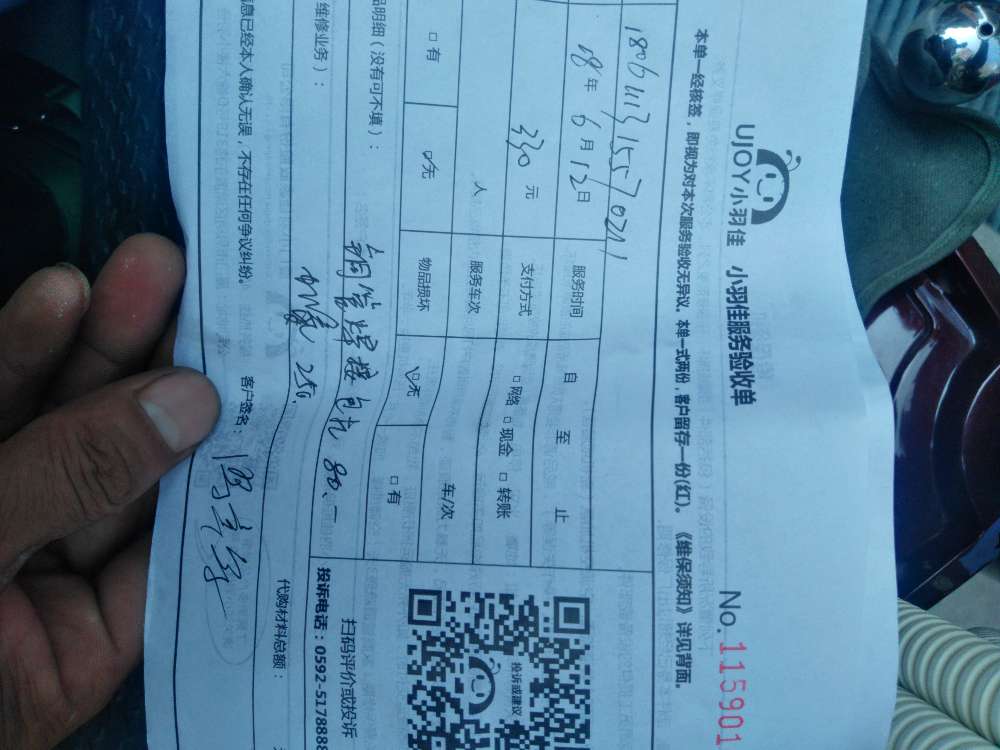 UJOY小羽佳 小羽佳服务验收单
No. 115901
本单一经核签，即视为对本次服务验收无异议。本单一式两份，客户留存一份(红)。《维保须知》详见背面。
18年 6月 12日 服务时间 自 至 止
330 元 支付方式 □ 网络 □ 现金 □ 转账
人 服务车次 车/次
□ 有 无 物品损坏 无 □ 有
品明细（没有可不填）：
铜管焊接包扎 80.-
维修业务）：
加氟 250.
息已经本人确认无误，不存在任何争议纠纷。 客户签名：
代购材料总额：
投诉或建议
扫码评价或投诉
投诉电话：0592-5178888